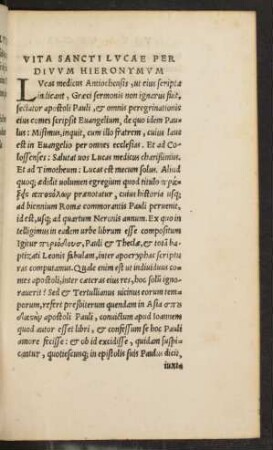 VITA SANCTI LVCAE PER
DIVVM HIERONYMVM
LVcas medicus Antiochensis, ut eius scripta
indicant, Græci sermonis non ignarus fuit,
sectator apostoli Pauli, & omnis peregrinationis
eius comes scripsit Euangelium, de quo idem Pau
lus: Misimus, inquit, cum illo fratrem, cuius laus
est in Euangelio per omnes ecclesias. Et ad Co-
lossenses: Salutat uos Lucas medicus charissimus.
Et ad Timotheum: Lucas est mecum solus. Aliud
quoq; ædidit uolumen egregium quod titulo πρά-
ξεις prænotatur, cuius historia usq;
ad biennium Romæ commorantis Pauli peruenit,
id est, usq; ad quartum Neronis annum. Ex quo in
telligimus in eadem urbe librum esse compositum
Igitur περιόδους, Pauli & Theclæ, & totā ba-
ptizati Leonis fabulam, inter apocryphas scriptu
ras computamus. Quale enim est ut indiuiduus co-
mes apostoli, inter cæteras eius res, hoc solū igno-
rauerit? Sed & Tertullianus uicinus eorum tem-
porum, refert presbiterum quendam in Asia σπου
apostoli Pauli, conuictum apud Ioannem
quod autor esset libri, & confessum se hoc Pauli
amore fecisse: & ob id excidisse, quidam suspi-
cantur, quotiescunq; in epistolis suis Paulus dicit,
iuxta